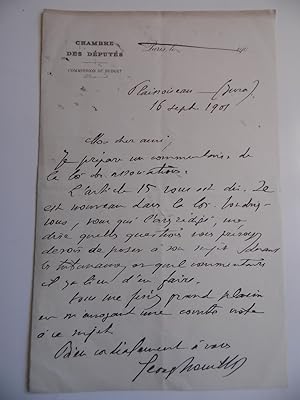 CHAMBRE
DES DÉPUTÉS
COMMISSION DU BUDGET
Paris, le 190
Plainoiseau (Jura)
16 sept 1901
Mon cher ami,
Je prépare un commentaire de
la loi des associations.
L'article 15 vous est dû. Il
est nouveau dans la loi. Voudriez-
vous, pour qui l'avez rédigé, me
dire quelles questions vous
de poser à son sujet devant
les tribunaux, et quel commentaire
il y a lieu d'en faire.
Vous me ferez grand plaisir
en m'envoyant une courte note
à ce sujet
Bien cordialement à vous